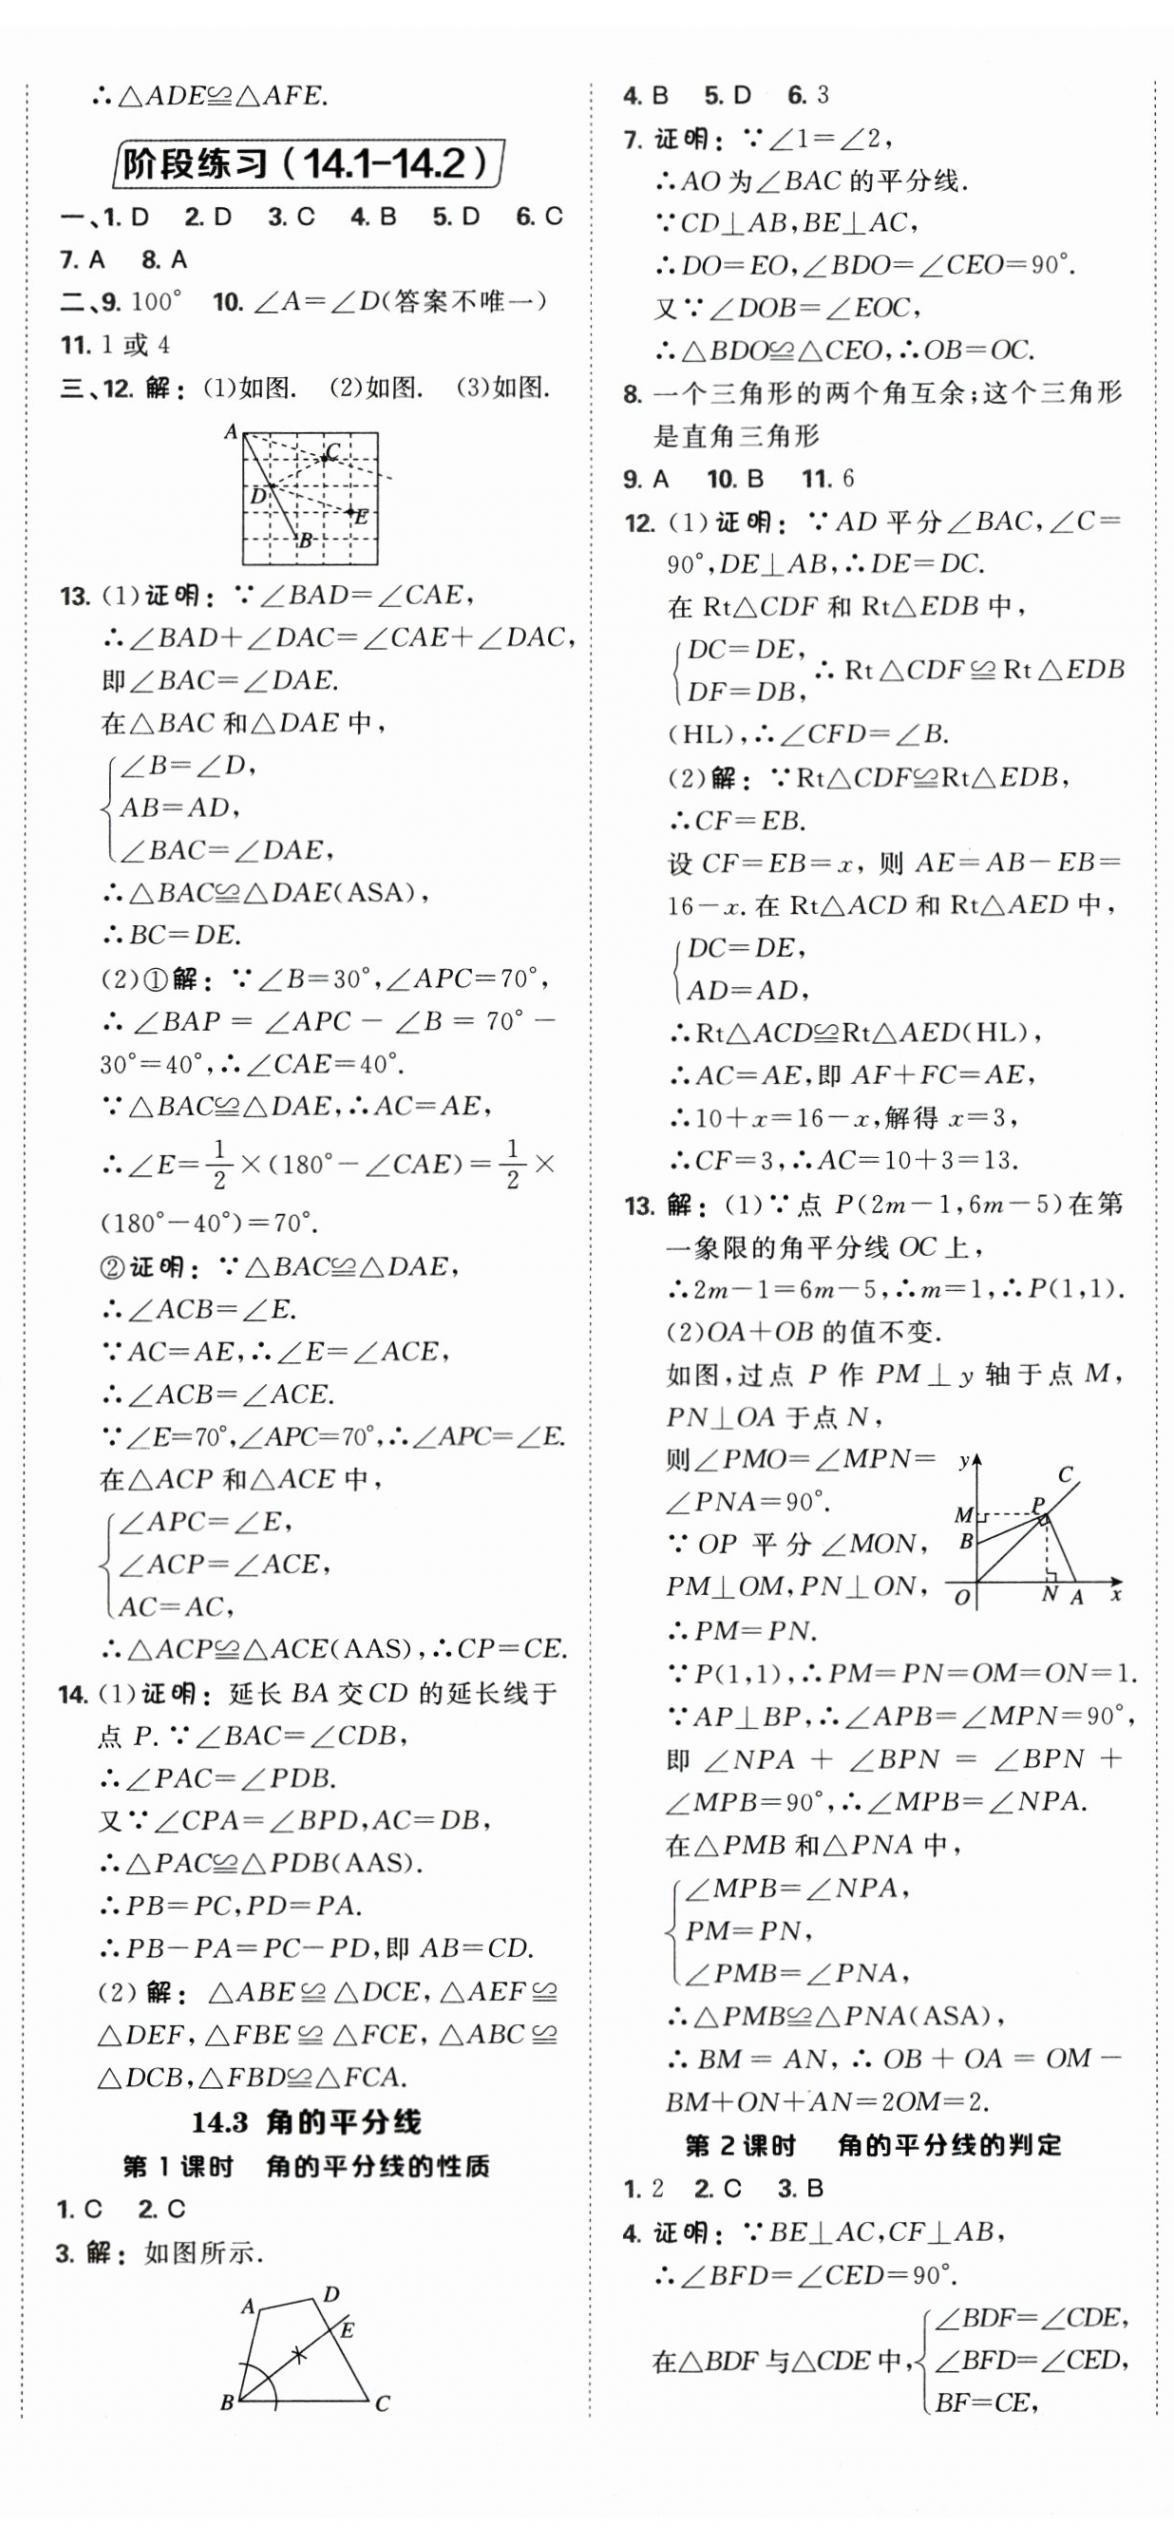 ∴△ADE≌△AFE.
阶段练习(14.1-14.2)
一、1. D 2. D 3. C 4. B 5. D 6. C
7. A 8. A
二、9. 100° 10. ∠A=∠D(答案不唯一)
11. 1 或 4
三、12. 解：(1)如图. (2)如图. (3)如图.
A
C
D
E
B
13. (1)证明：∵∠BAD=∠CAE,
∴∠BAD+∠DAC=∠CAE+∠DAC,
即∠BAC=∠DAE.
在△BAC 和△DAE 中,
∠B=∠D,
AB=AD,
∠BAC=∠DAE,
∴△BAC≌△DAE(ASA),
∴BC=DE.
(2)①解：∵∠B=30°,∠APC=70°,
∴ ∠BAP = ∠APC - ∠B = 70° -
30°=40°,∴∠CAE=40°.
∵△BAC≌△DAE,∴AC=AE,
∴∠E=1/2×(180°-∠CAE)=1/2×
(180°-40°)=70°.
②证明：∵△BAC≌△DAE,
∴∠ACB=∠E.
∵AC=AE,∴∠E=∠ACE,
∴∠ACB=∠ACE.
∵∠E=70°,∠APC=70°,∴∠APC=∠E.
在△ACP 和△ACE 中,
∠APC=∠E,
∠ACP=∠ACE,
AC=AC,
∴△ACP≌△ACE(AAS),∴CP=CE.
14. (1)证明：延长 BA 交 CD 的延长线于
点 P. ∵∠BAC=∠CDB,
∴∠PAC=∠PDB.
又∵∠CPA=∠BPD,AC=DB,
∴△PAC≌△PDB(AAS).
∴PB=PC,PD=PA.
∴PB-PA=PC-PD,即 AB=CD.
(2)解：△ABE≌△DCE,△AEF≌
△DEF,△FBE≌△FCE,△ABC≌
△DCB,△FBD≌△FCA.
14.3 角的平分线
第 1 课时 角的平分线的性质
1. C 2. C
3. 解：如图所示.
A
D
E
B
C
4. B 5. D 6. 3
7. 证明：∵∠1=∠2,
∴AO 为∠BAC 的平分线.
∵CD⊥AB,BE⊥AC,
∴DO=EO,∠BDO=∠CEO=90°.
又∵∠DOB=∠EOC,
∴△BDO≌△CEO,∴OB=OC.
8. 一个三角形的两个角互余;这个三角形
是直角三角形
9. A 10. B 11. 6
12. (1)证明：∵AD 平分∠BAC,∠C=
90°,DE⊥AB,∴DE=DC.
在 Rt△CDF 和 Rt△EDB 中,
DC=DE,
DF=DB,
∴Rt△CDF≌Rt△EDB
(HL),∴∠CFD=∠B.
(2)解：∵Rt△CDF≌Rt△EDB,
∴CF=EB.
设 CF=EB=x, 则 AE=AB-EB=
16-x. 在 Rt△ACD 和 Rt△AED 中,
DC=DE,
AD=AD,
∴Rt△ACD≌Rt△AED(HL),
∴AC=AE,即 AF+FC=AE,
∴10+x=16-x,解得 x=3,
∴CF=3,∴AC=10+3=13.
13. 解：(1)∵点 P(2m-1,6m-5)在第
一象限的角平分线 OC 上,
∴2m-1=6m-5,∴m=1,∴P(1,1).
(2)OA+OB 的值不变.
如图,过点 P 作 PM⊥y 轴于点 M,
PN⊥OA 于点 N,
则∠PMO=∠MPN=
∠PNA=90°.
∵OP 平分∠MON,
PM⊥OM,PN⊥ON,
y
C
M
P
B
O
N
A
x
∴PM=PN.
∵P(1,1),∴PM=PN=OM=ON=1.
∵AP⊥BP,∴∠APB=∠MPN=90°,
即 ∠NPA + ∠BPN = ∠BPN +
∠MPB=90°,∴∠MPB=∠NPA.
在△PMB 和△PNA 中,
∠MPB=∠NPA,
PM=PN,
∠PMB=∠PNA,
∴△PMB≌△PNA(ASA),
∴ BM = AN, ∴ OB + OA = OM -
BM+ON+AN=2OM=2.
第 2 课时 角的平分线的判定
1. 2 2. C 3. B
4. 证明：∵BE⊥AC,CF⊥AB,
∴∠BFD=∠CED=90°.
在△BDF 与△CDE 中,
∠BDF=∠CDE,
∠BFD=∠CED,
BF=CE,